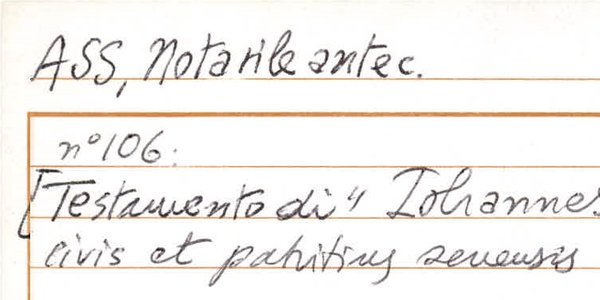 ASS, Notarile antec.
n° 106:
[Testamento di " Iohannes
civis et patritius senensis